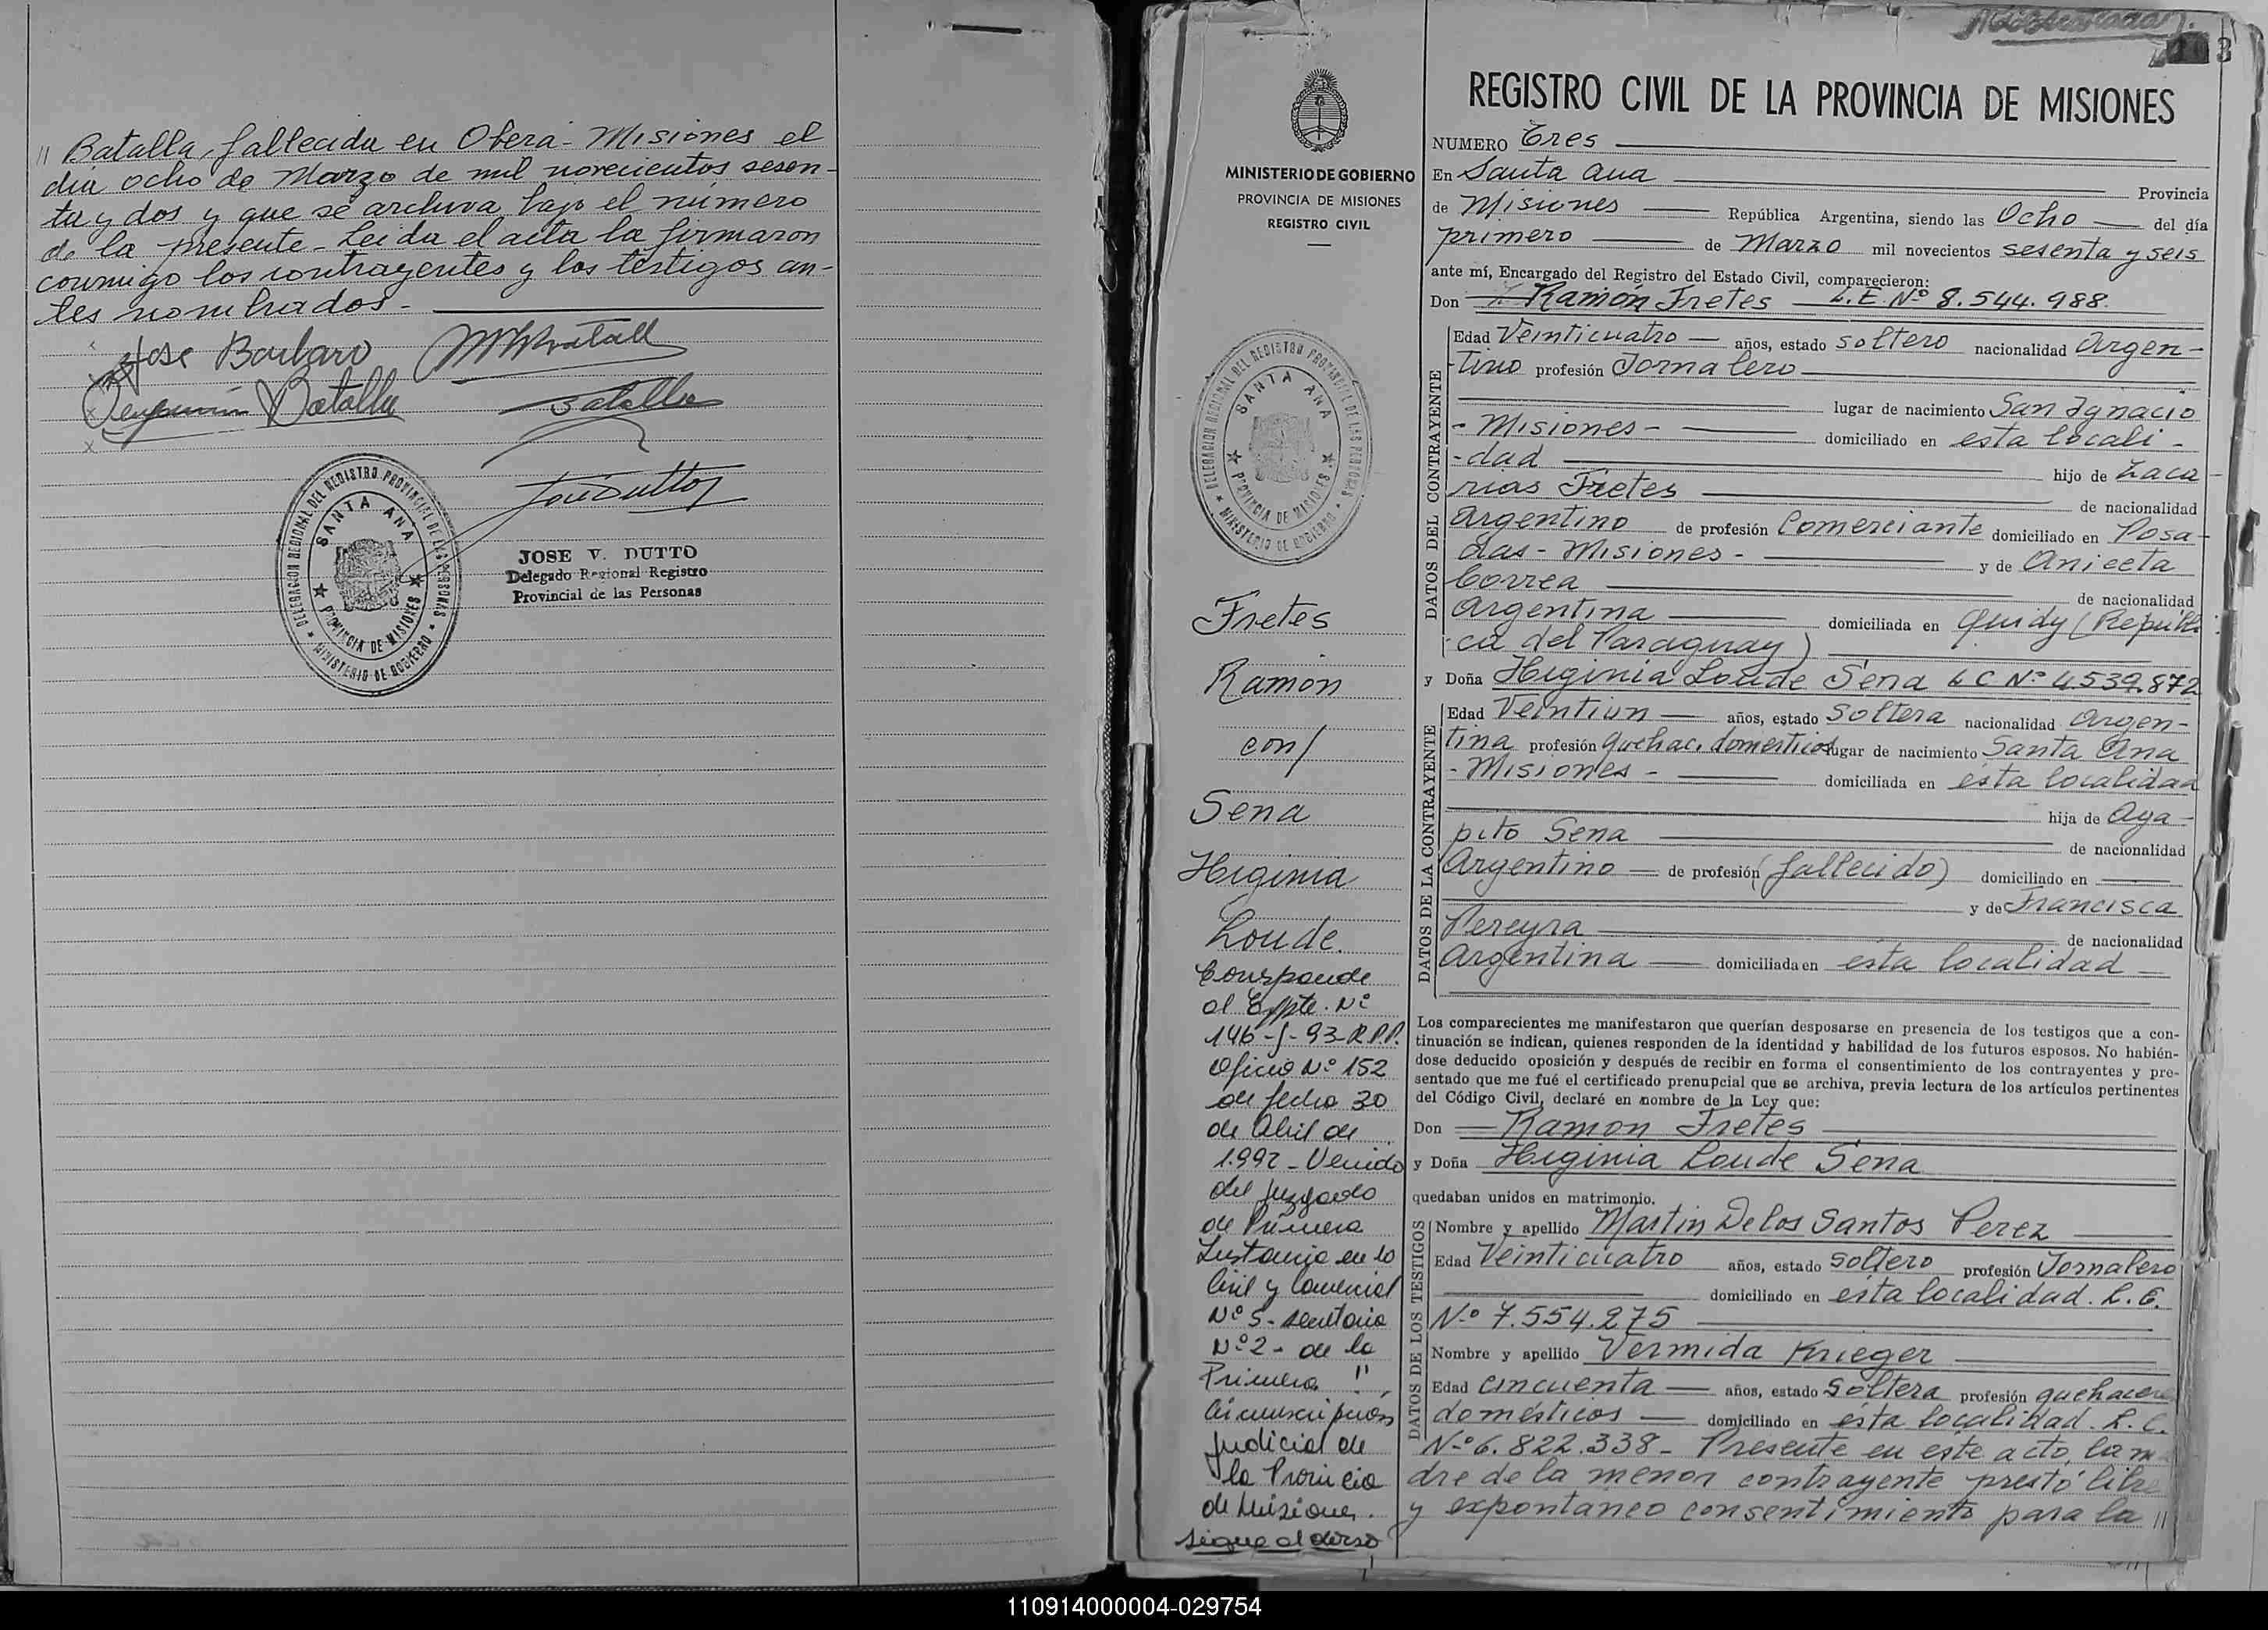 " Batalla, fallecida en Oberá - Misiones el
día ocho de Marzo de mil novecientos sesen-
ta y dos y que se archiva bajo el número
de la presente - Leída el acta la firmaron
conmigo los contrayentes y los testigos an-
tes nombrados -
Jose Barbaro
Benjamin Batalla
Batalla
Jose Dutto
DELEGACION REGIONAL DEL REGISTRO PROVINCIAL DE LAS PERSONAS
SANTA ANA
PROVINCIA DE MISIONES
MINISTERIO DE GOBIERNO
JOSE V. DUTTO
Delegado Regional Registro
Provincial de las Personas
3
MINISTERIO DE GOBIERNO
PROVINCIA DE MISIONES
REGISTRO CIVIL
DELEGACION REGIONAL DEL REGISTRO PROVINCIAL DE LAS PERSONAS
SANTA ANA
PROVINCIA DE MISIONES
MINISTERIO DE GOBIERNO
Fretes
Ramón
con/
Sena
Higinia
Loude.
Corresponde
al Expte. Nº
146-f-93-R.P.P.
Oficio Nº 152
de fecha 30
de Abril de
1.992 - Venido
del Juzgado
de Primera
Instancia en lo
Civil y Comercial
Nº 5 - secretaria
Nº 2 - de la
Primera "
Circunscripción
Judicial de
la Provincia
de Misiones.
sigue al dorso
REGISTRO CIVIL DE LA PROVINCIA DE MISIONES
NUMERO Tres
En Santa Ana Provincia
de Misiones República Argentina, siendo las Ocho del día
primero de Marzo mil novecientos sesenta y seis
ante mí, Encargado del Registro del Estado Civil, comparecieron:
Don Ramón Fretes L.E. Nº 8.544.988.
DATOS DEL CONTRAYENTE
Edad Veinticuatro años, estado soltero nacionalidad Argen-
-tino profesión Jornalero
lugar de nacimiento San Ignacio
- Misiones - domiciliado en esta locali-
-dad hijo de Zaca-
rias Fretes de nacionalidad
Argentino de profesión Comerciante domiciliado en Posa-
das - Misiones - y de Aniceta
Correa de nacionalidad
Argentina domiciliada en Quidy (Repúbli-
ca del Paraguay)
y Doña Higinia Loude Sena L C Nº 4.539.872
DATOS DE LA CONTRAYENTE
Edad Veintiun años, estado Soltera nacionalidad Argen-
tina profesión quehac. domésticos lugar de nacimiento Santa Ana
- Misiones - domiciliada en ésta localidad
hija de Aga-
pito Sena de nacionalidad
Argentino de profesión (fallecido) domiciliado en
y de Francisca
Pereyra de nacionalidad
Argentina domiciliada en esta localidad
Los comparecientes me manifestaron que querían desposarse en presencia de los testigos que a con-
tinuación se indican, quienes responden de la identidad y habilidad de los futuros esposos. No habién-
dose deducido oposición y después de recibir en forma el consentimiento de los contrayentes y pre-
sentado que me fué el certificado prenupcial que se archiva, previa lectura de los artículos pertinentes
del Código Civil, declaré en nombre de la Ley que:
Don Ramon Fretes
y Doña Higinia Loude Sena
quedaban unidos en matrimonio.
DATOS DE LOS TESTIGOS
Nombre y apellido Martin De los Santos Perez
Edad Veinticuatro años, estado soltero profesión Jornalero
domiciliado en ésta localidad. L. E.
Nº 7.554.275
Nombre y apellido Vermida Krieger
Edad cincuenta años, estado Soltera profesión quehaceres
domésticos domiciliado en ésta localidad. L. C.
Nº 6.822.338 - Presente en este acto, la ma
dre de la menor contrayente prestó libre
y expontaneo consentimiento para la "
110914000004-029754